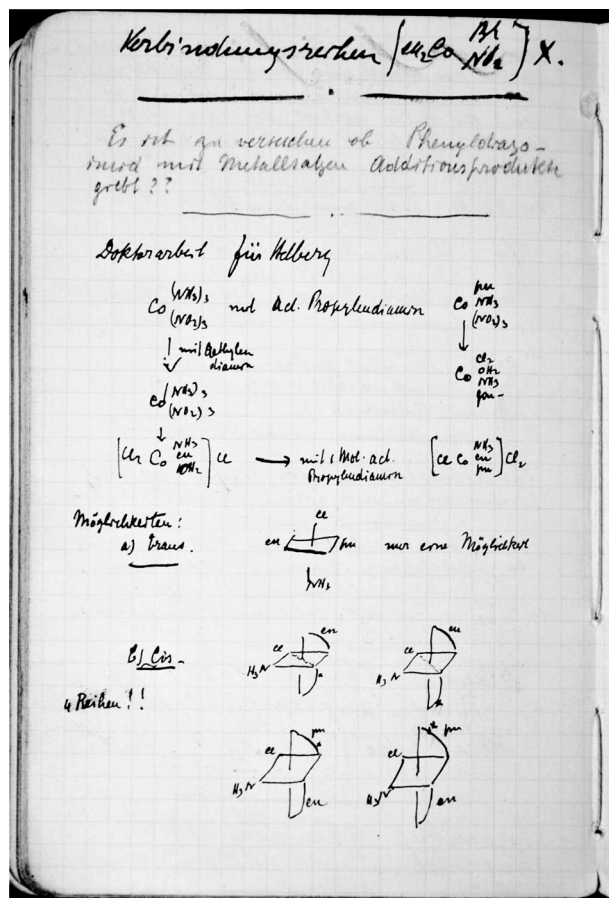 Verbindungsreihen [en₂Co Br NO₂] X.
Es ist zu versuchen ob Phenyldiazo-
imid mit Metallsalzen Additionsprodukte
giebt??
Doktorarbeit für Helberg
Co (NH₃)₃ (NO₂)₃ mit act. Propylendiamin
Co pn NH₃ (NO₂)₃
mit Aethylen
diamin
Co (NH₃)₃ (NO₂)₃
Co Cl₂ OH₂ NH₃ pn
[Cl₂ Co NH₃ en OH₂] Cl → mit 1 Mol. act.
Propylendiamin
[Cl Co NH₃ en pn] Cl₂
Möglichkeiten:
a) trans.
cl
en pn
NH₃
nur eine Möglichkeit
b) Cis-
4 Reihen!!
cl en
H₃N
en
H₃N
cl pn
H₃N en
cl pn
H₃N en